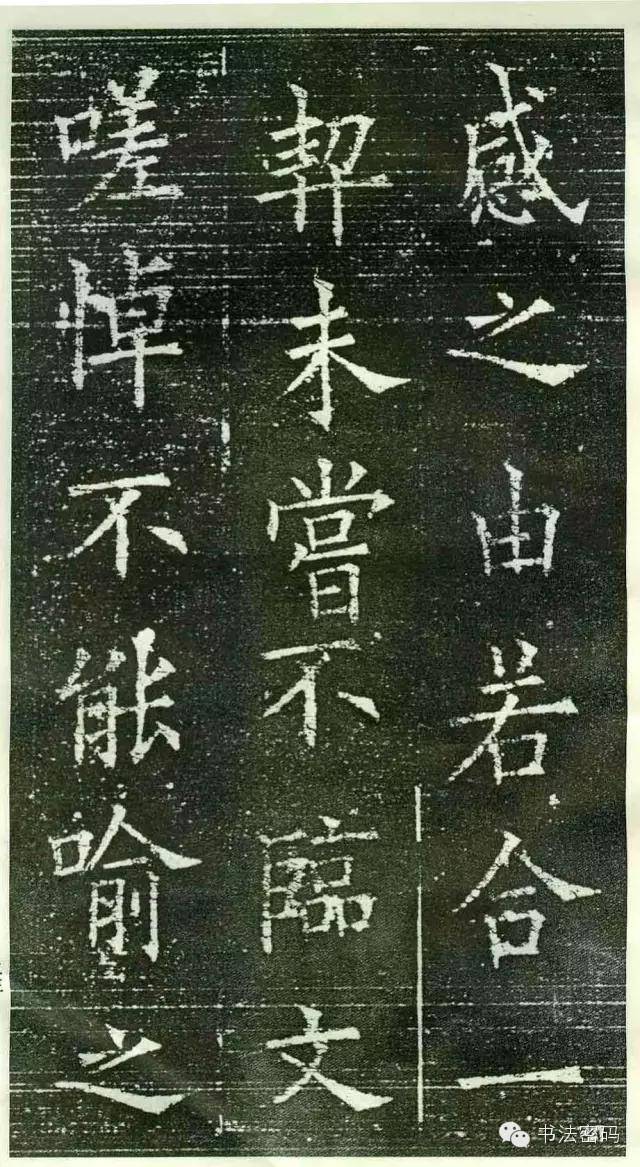 感之由若合一
契未嘗不臨文
嗟悼不能喻之
书法密码